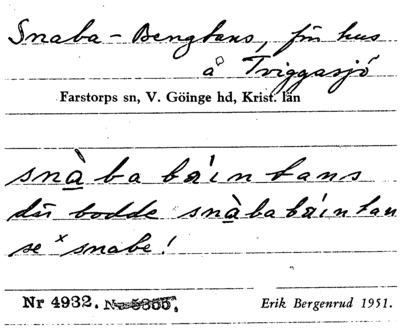 Snaba-Bengtens, fin hus
å Tviggasjö
Farstorps sn, V. Göinge hd, Krist. län
snàba bä́intans
där bodde snàbabä́intan
se ˣsnabe!
Nr 4932. Erik Bergenrud 1951.